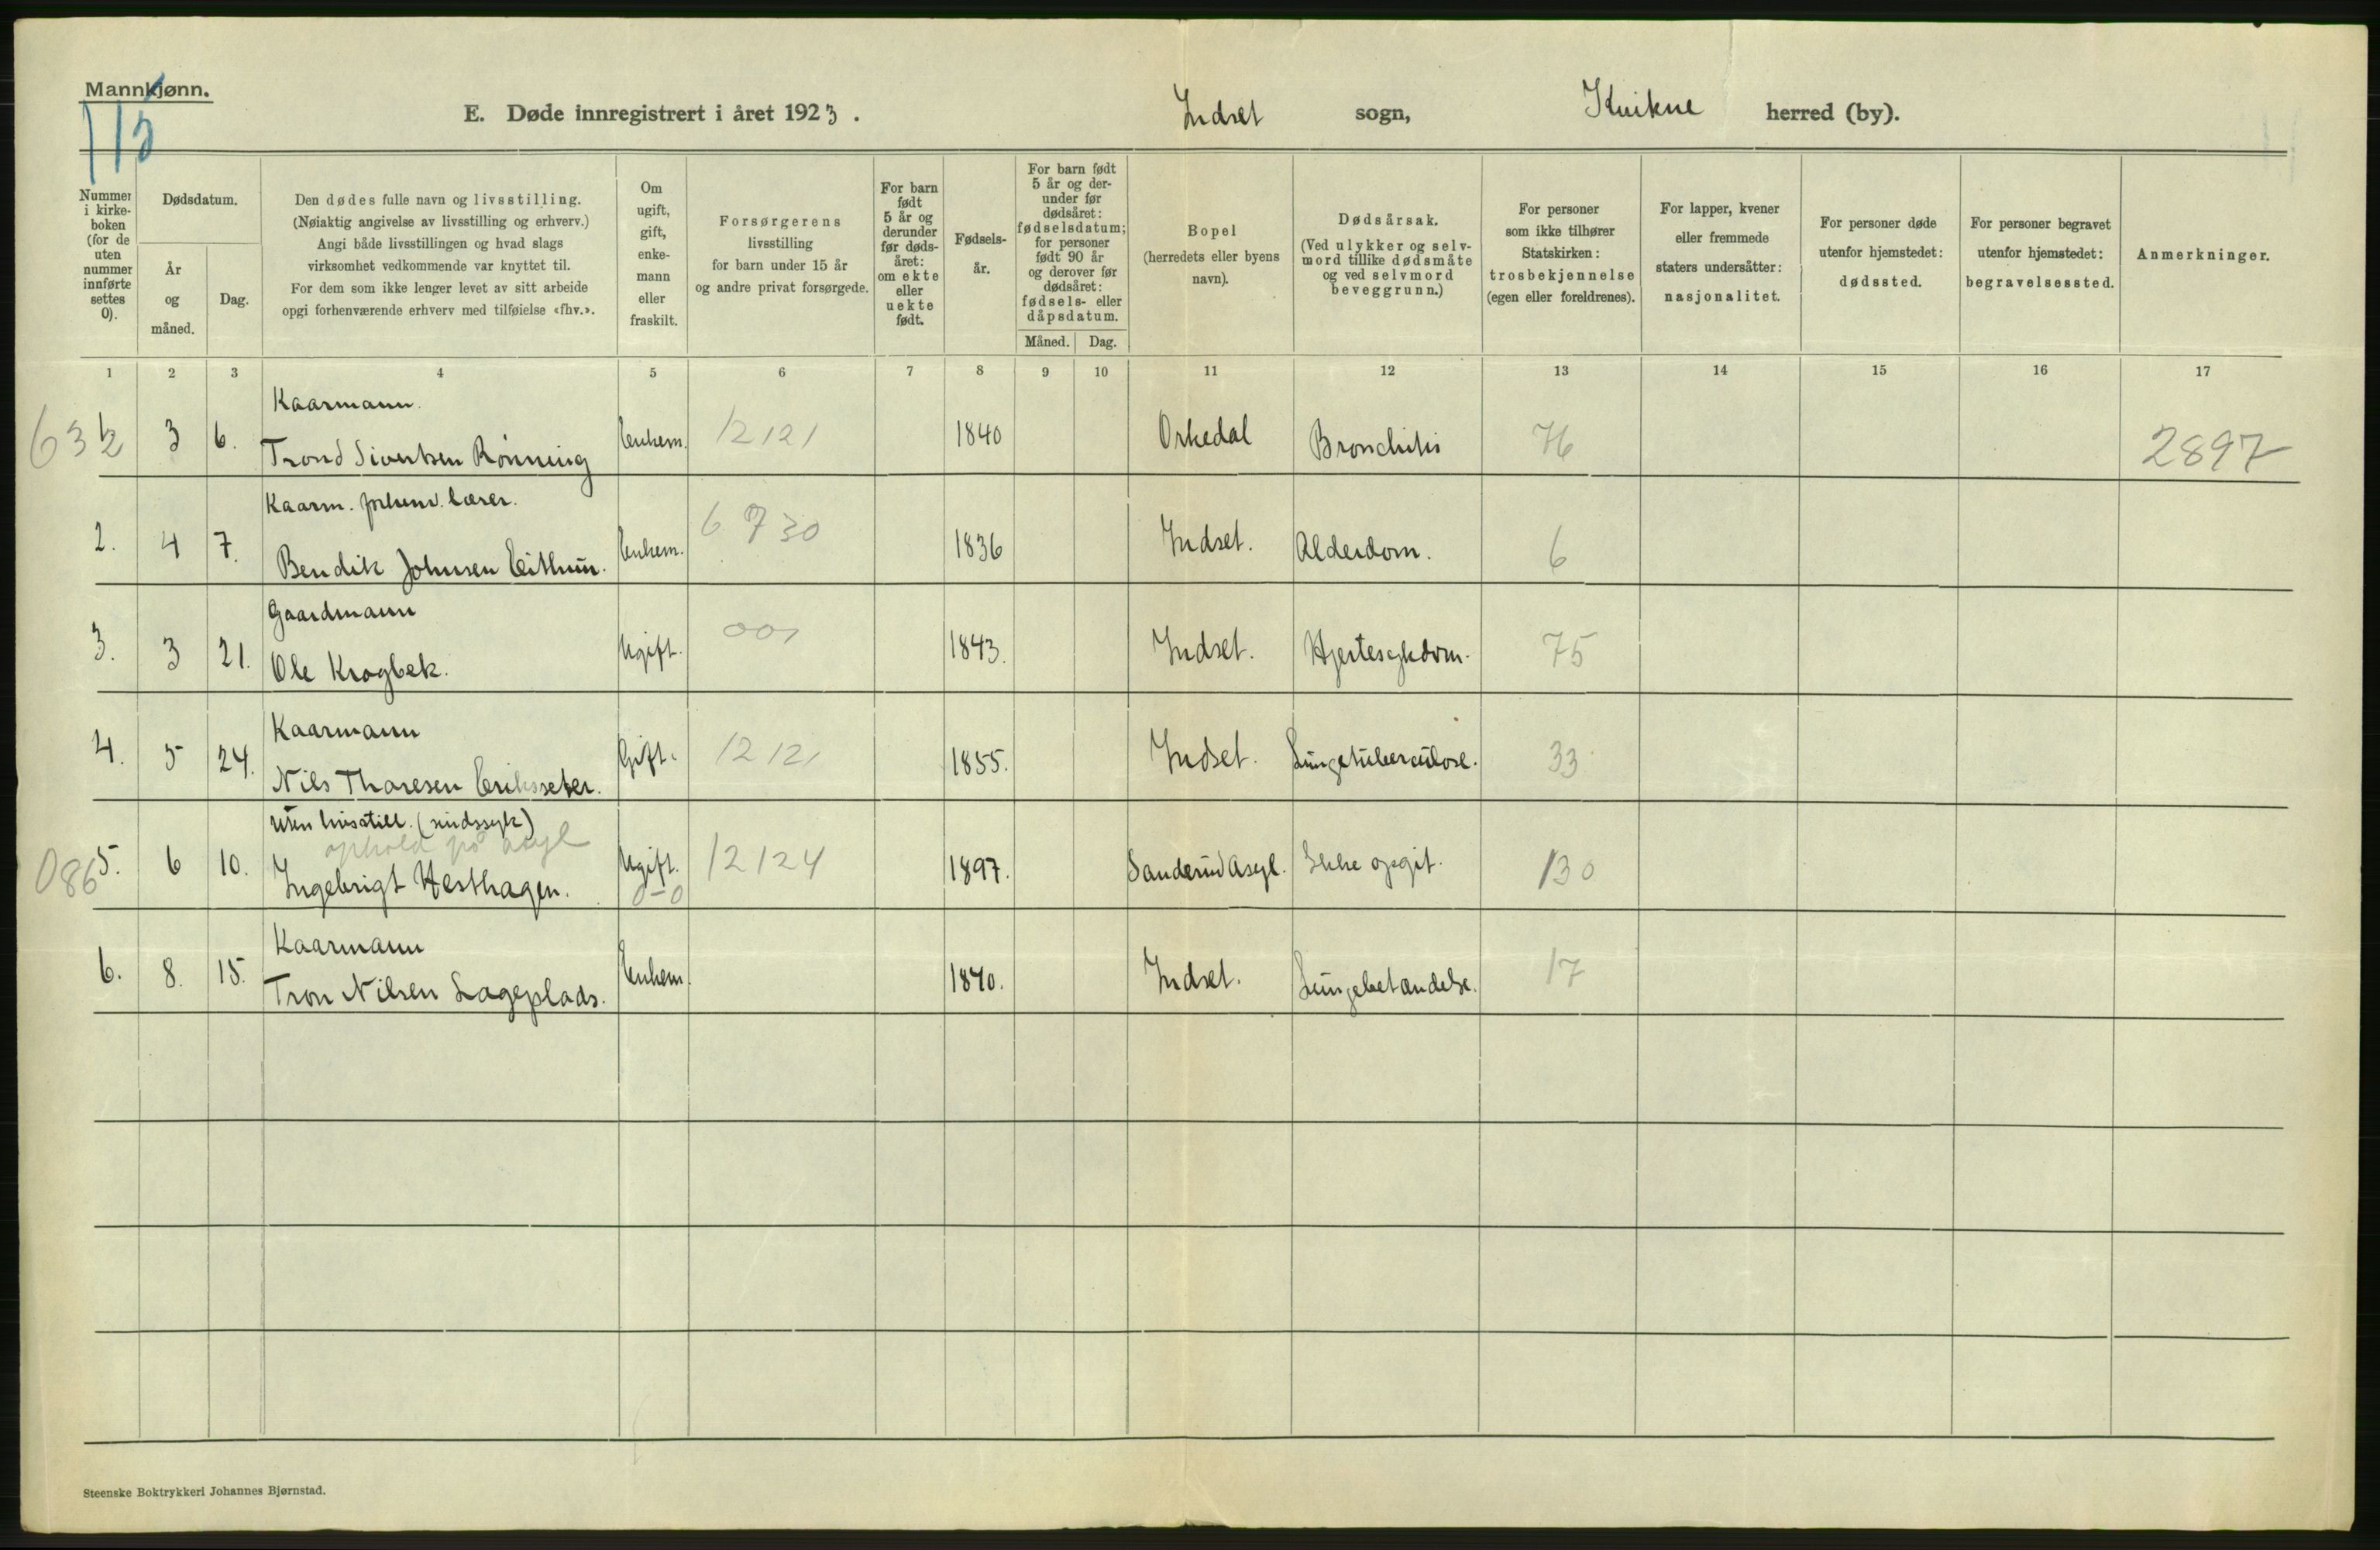 Mannkjønn.
115
E. Døde innregistrert i året 1923.
Indset sogn, Kvikne herred (by).
Nummer i kirkeboken (for de uten nummer innførte settes 0).
Dødsdatum.
År og måned.
Dag.
Den dødes fulle navn og livsstilling.
(Nøiaktig angivelse av livsstilling og erhverv.)
Angi både livsstillingen og hvad slags
virksomhet vedkommende var knyttet til.
For dem som ikke lenger levet av sitt arbeide
opgi forhenværende erhverv med tilføielse «fhv.».
Om ugift, gift, enkemann eller fraskilt.
Forsørgerens
livsstilling
for barn under 15 år
og andre privat forsørgede.
For barn født 5 år og derunder før dødsåret: om ekte eller uekte født.
Fødselsår.
For barn født 5 år og derunder før dødsåret: fødselsdatum; for personer født 90 år og derover før dødsåret: fødsels- eller dåpsdatum.
Måned. Dag.
Bopel
(herredets eller byens
navn).
Dødsårsak.
(Ved ulykker og selvmord tillike dødsmåte og ved selvmord beveggrunn.)
For personer
som ikke tilhører
Statskirken:
trosbekjennelse
(egen eller foreldrenes).
For lapper, kvener
eller fremmede
staters undersåtter:
nasjonalitet.
For personer døde
utenfor hjemstedet:
dødssted.
For personer begravet
utenfor hjemstedet:
begravelsessted.
Anmerkninger.
1 2 3 4 5 6 7 8 9 10 11 12 13 14 15 16 17
Kaarmann.
632 3 6. Trond Sivertsen Rönning Enkem. 12121 1840 Orkedal Bronchitis 76 2897
Kaarm. lærer.
2. 4 7. Bendik Johnsen Enkem. 6 730 1836 Indset. Alderdom. 6
Gaardmann
3. 3 21. Ole Krogbek. Ugift. 001 1843. Indset. Hjertesykdom. 75
Kaarmann
4. 5 24. Nils Thoresen Eriksseter. Gift. 12121 1855. Indset. Lungetuberculose. 33
Uten livsstill. (sindssyk)
ophold på asyl
086 5. 6 10. Ingebrigt Hesthagen. Ugift. 0-0 12124 1897. Sanderud Asyl. Ikke opgit. 130
Kaarmann
6. 8. 15. Tron Nilsen Lageplads. Enkem. 1840. Indset. Lungebetændelse. 17
Steenske Boktrykkeri Johannes Bjørnstad.